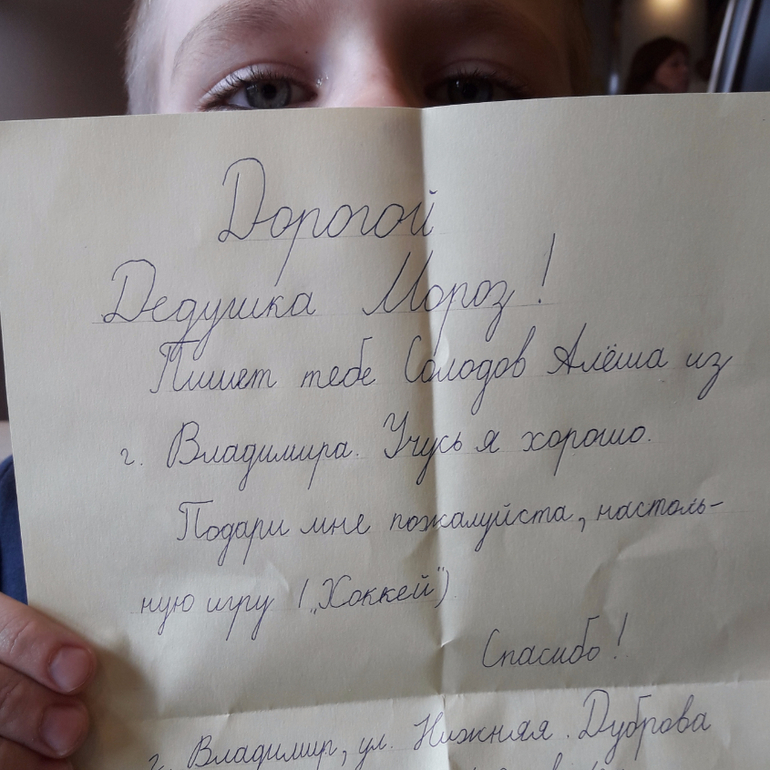 Дорогой
Дедушка Мороз!
Пишет тебе Солодов Алёша из
г. Владимира. Учусь я хорошо.
Подари мне пожалуйста, настоль-
ную игру („Хоккей")
Спасибо!
г. Владимир, ул. Нижняя. Дуброва